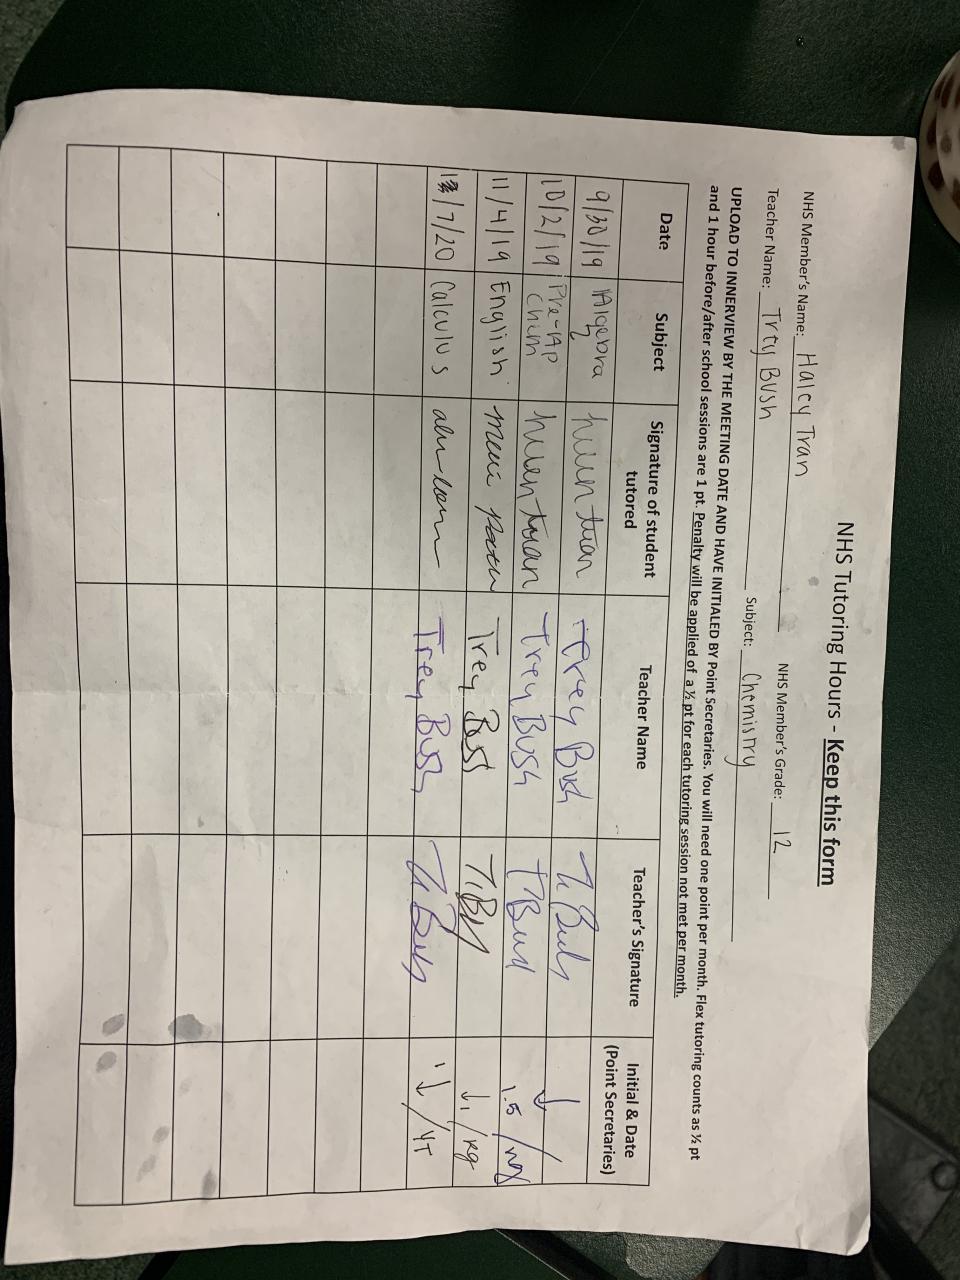 NHS Tutoring Hours - Keep this form
NHS Member's Name: Haley Tran NHS Member's Grade: 12
Teacher Name: Trey Bush Subject: Chemistry
UPLOAD TO INNERVIEW BY THE MEETING DATE AND HAVE INITIALED BY Point Secretaries. You will need one point per month. Flex tutoring counts as ½ pt
and 1 hour before/after school sessions are 1 pt. Penalty will be applied of a ½ pt for each tutoring session not met per month.
Date Subject Signature of student tutored Teacher Name Teacher's Signature Initial & Date (Point Secretaries)
9/30/19 Algebra Trey Bush ↓
10/2/19 Pre-AP Chem Trey Bush 1.5 /
11/4/19 English Trey T. ↓ 1 /
1/7/20 Calculus Trey Bush 1 ↓ / YT